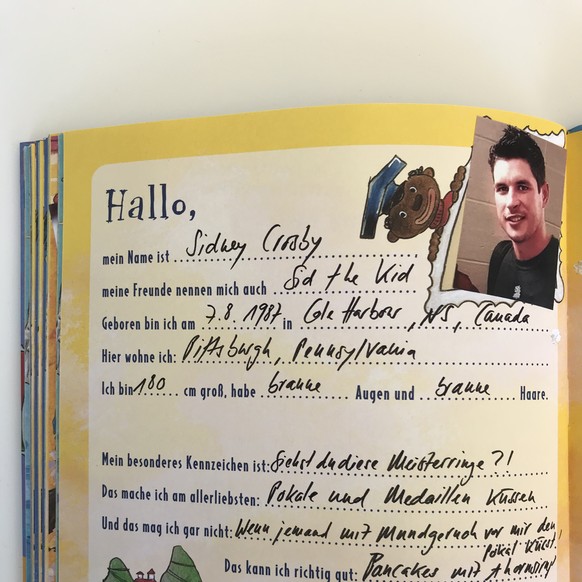 Hallo,
mein Name ist Sidney Crosby
meine Freunde nennen mich auch Sid the Kid
Geboren bin ich am 7.8.1987 in Cole Harbour, NS, Canada
Hier wohne ich: Pittsburgh, Pennsylvania
Ich bin 180 cm groß, habe braune Augen und braune Haare.
Mein besonderes Kennzeichen ist: Siehst du diese Meisterringe?!
Das mache ich am allerliebsten: Pokale und Medaillen küssen
Und das mag ich gar nicht: Wenn jemand mit Mundgeruch vor mir den
Pokal küsst!
Das kann ich richtig gut: Pancakes mit